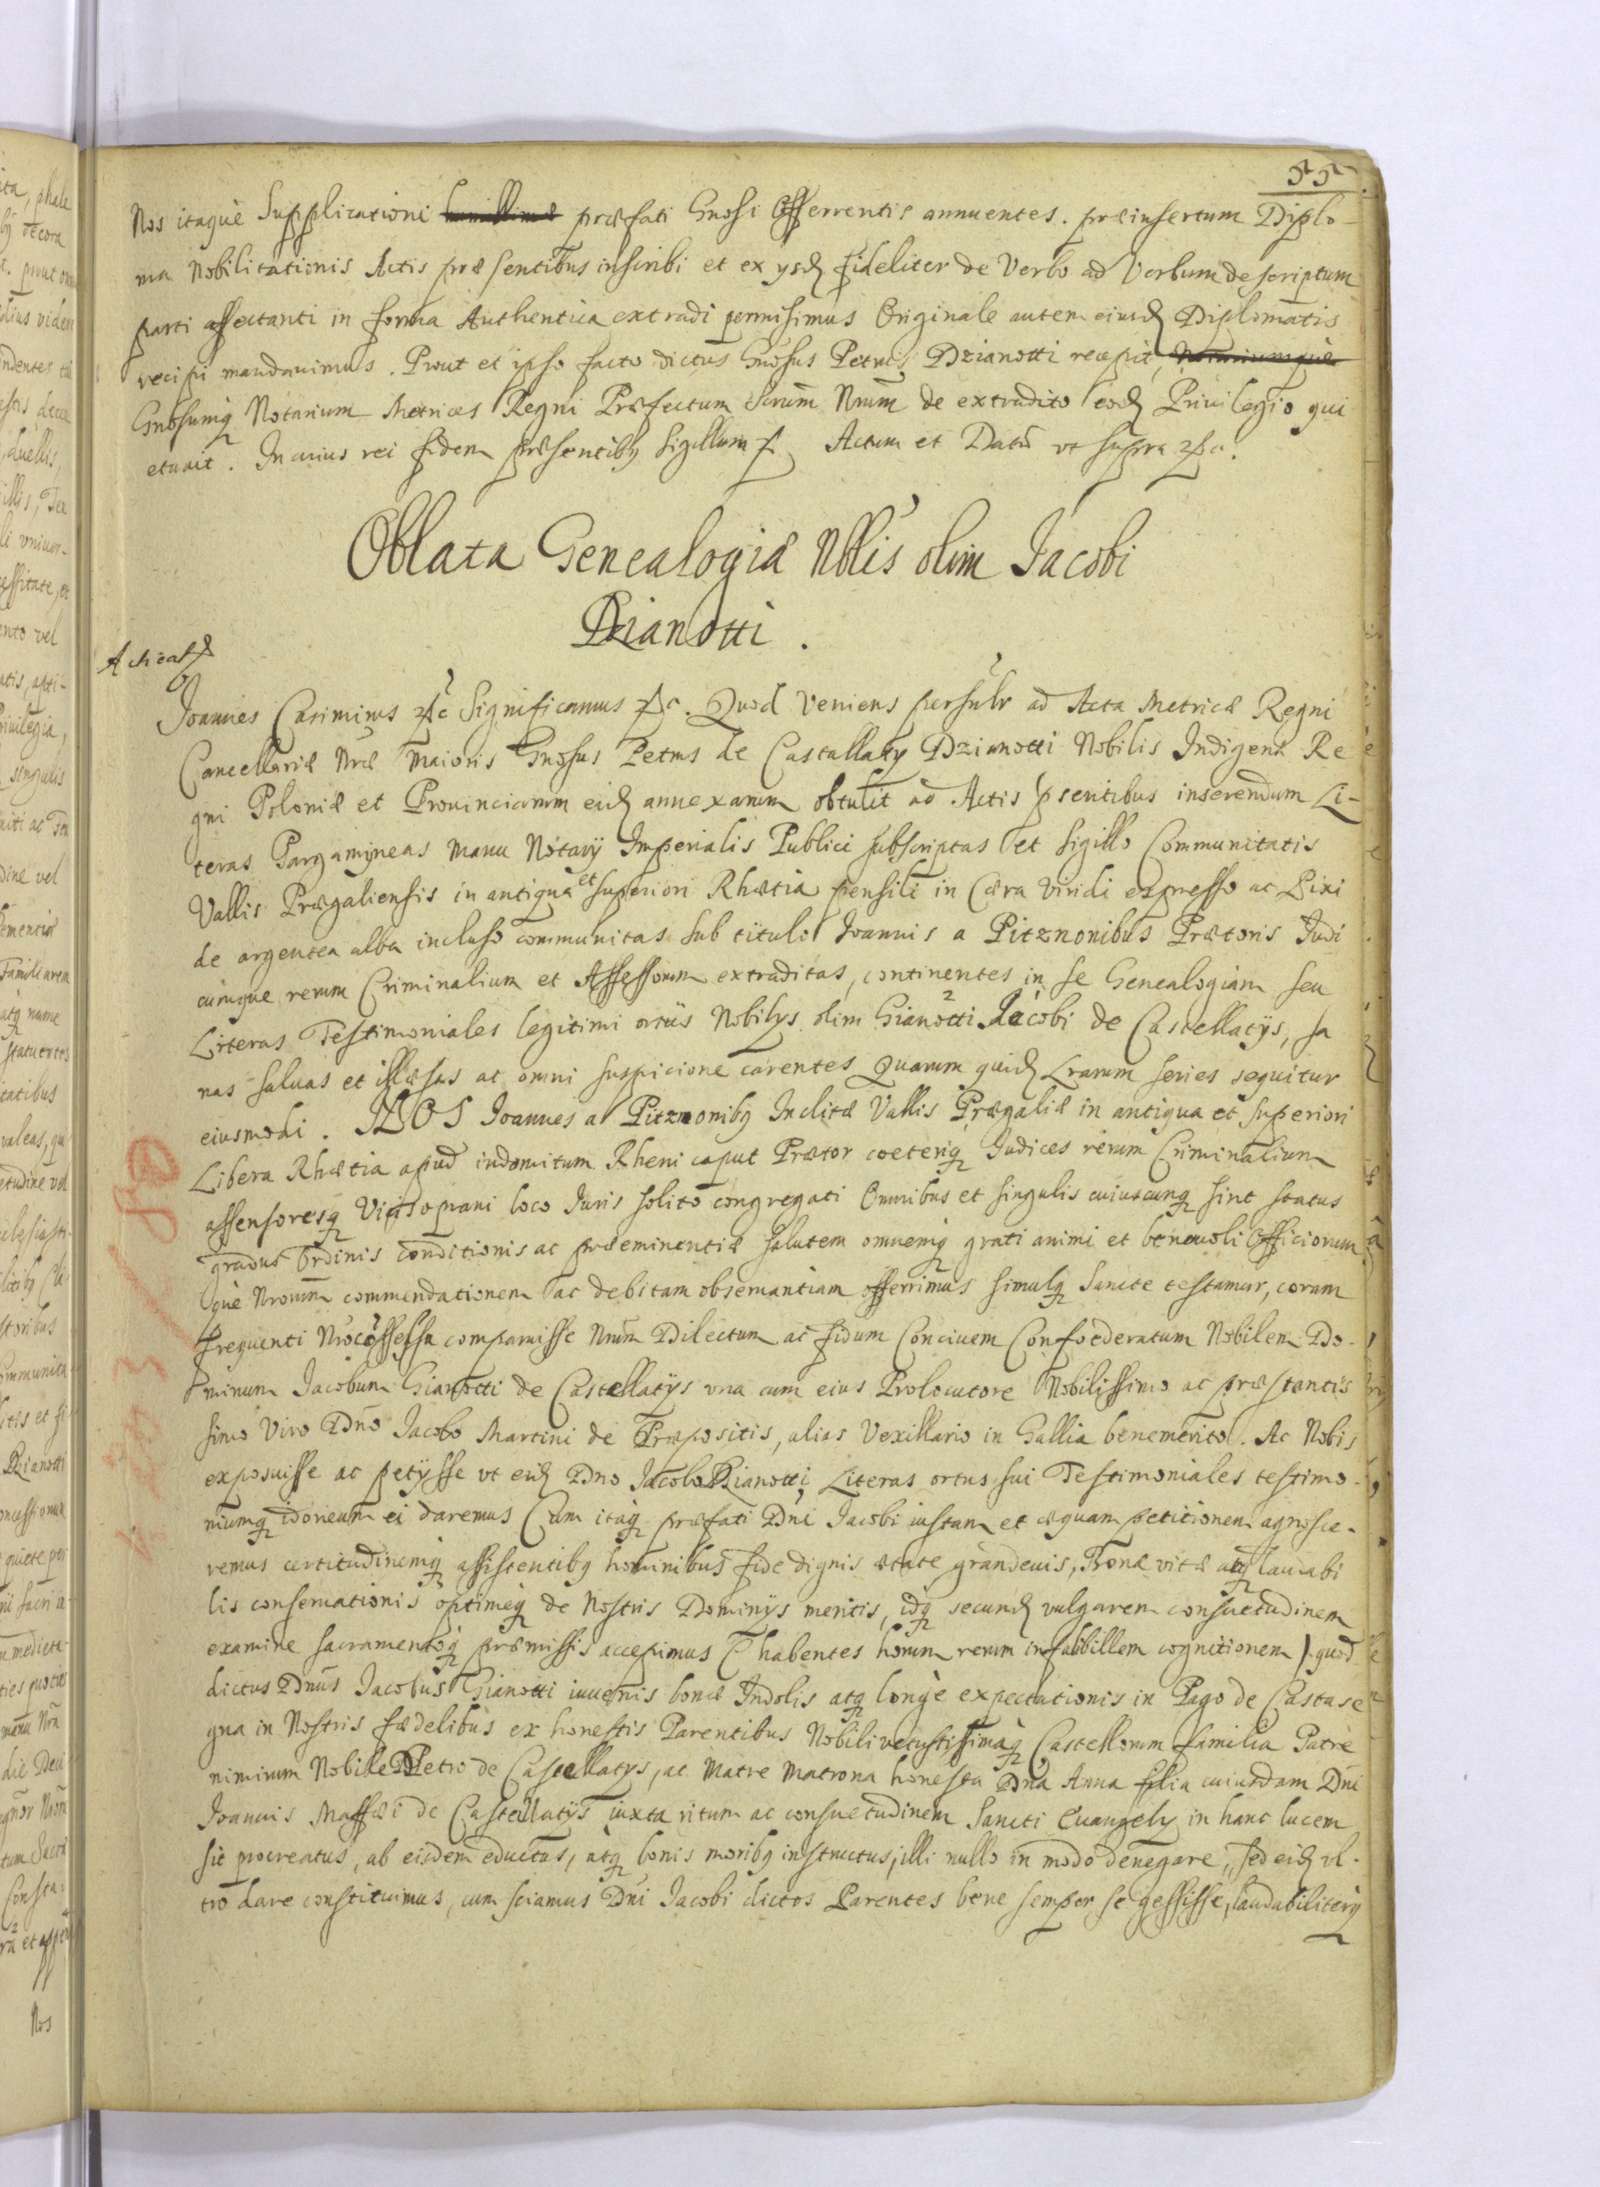 55
Nos itaque Supplicationi humillimæ præfati Gnosi Offerrentis annuentes. præinsertum Diplo-
ma Nobilitationis Actis præsentibus inscribi et ex ysd fideliter de Verbo ad Verbum descriptum
parti affectanti in forma Authentica extradi permisimus Originale autem eiusd Diplomatis
recipi mandavimus. Prout et ipso facto dictus Gnosus Petrus Dzianotti recepit, Notariumque
Gnosumq Notarium Metrices Regni Præfectum Scrum Nrum de extradito eod Privilegio qui
etavit. In cuius rei fidem præsentibq Sigillum p. Actum et Datū vt supra &c.
Oblata Genealogiæ Nblis olim Jacobi
Dzianotti.
Acticat
Joannes Casimirus &c Significamus &c. Quod veniens persulr ad Acta Metricæ Regni
Cancellariæ Nræ Maioris Gnosus Petrus de Castallaty Dzianotti Nobilis Indigena Re
gni Poloniæ et Provinciarum eid annexarum obtulit ad Actis psentibus inserendum Li-
teras Pargamineas manu Notarij Imperialis Publici subscriptas et Sigillo Communitatis
Vallis Prægaliensis in antiqua et superiori Rhætia pensili in Cæra viridi expresso ac Pixi
de argentea alba incluso communitas sub titulo Joannis a Pitznonibus Prætoris Judi
cumque rerum Criminalium et Assessorum extraditas, continentes in se Genealogiam seu
Literas Testimoniales legitimi ortus Nobilys olim Gianotti 2 Jacobi 1 de Castellatÿs, sa
nas salvas et illæsas ac omni suspicione carentes Quarum quid Lrarum series sequitur
eiusmodi. NOS Joannes a Pitznonibq Inclitæ Vallis Prægaliæ in antiqua et superiori
Libera Rhætia apud indomitum Rheni caput Prætor cœteriq Judices rerum Criminalium
assensoresq Vicosoprani loco Juris solito congregati Omnibus et singulis cuiuscunq sint status
gradus Ordinis conditionis ac præeminentiæ salutem omnemq grati animi et benevoli Officiorum
què Nrorum commendationem ac debitam observantiam offerrimus simulq Sancte testamur, coram
frequenti Nro cossessu comparuisse Nrum Dilectum ac fidum Concivem Confœderatum Nobilem Do-
minum Jacobum Gianotti de Castellatÿs vna cum eius Prolocutore Nobilissimo ac præstantis
simo Viro Dno Jacobo Martini de Præpositis, alias Vexillario in Gallia benemerito. Ac Nobis
exposuisse ac petÿsse vt eid Dno Jacobo Dzianotti Literas ortus sui Testimoniales testimo-
niumq idoneum ei daremus Cum itaq præfati Dni Jacobi iustam et æquam petitionem agnosce-
remus certitudinemq assistentibq hominibus fide dignis ætate grandevis, bonæ vitæ atq laudabi
lis conservationis optimeq de Nostris Dominys meritis, idq secund vulgarem consuetudinem
examine sacramentoq præmissis accepimus (habentes horum rerum infabbillem cognitionem) quod
dictus Dnus Jacobus Gianotti iuvenis bonæ Indolis atq longe expectationis in Pago de Castase
gna in Nostris fædelibus ex honestis Parentibus Nobili vetustissimaq Castellorum familia Patre
nimirum Nobile D Petro de Castellatys, ac Matre Matrona honesta Dna Anna filia cuiusdam Dni
Joannis Maffæi de Castellatÿs iuxta ritum ac consuetudinem Sancti Evangely in hanc lucem
sit procreatus, ab eisdem eductus, atq bonis moribq instructus, illi nullo in modo denegare, sed eid ul-
tro dare constituimus, cum sciamus Dni Jacobi dictos Parentes bene semper se gessisse, laudabiliterq